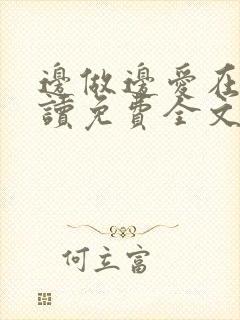 邊做邊愛在
讀免費全文
何立富